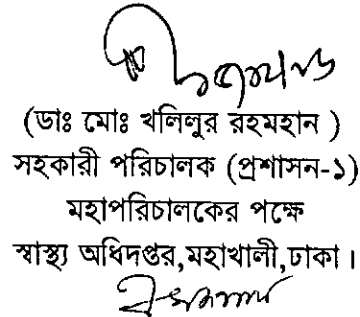 (ডাঃ মোঃ খলিলুর রহমহান )
সহকারী পরিচালক (প্রশাসন-১)
মহাপরিচালকের পক্ষে
স্বাস্থ্য অধিদপ্তর,মহাখালী,ঢাকা।